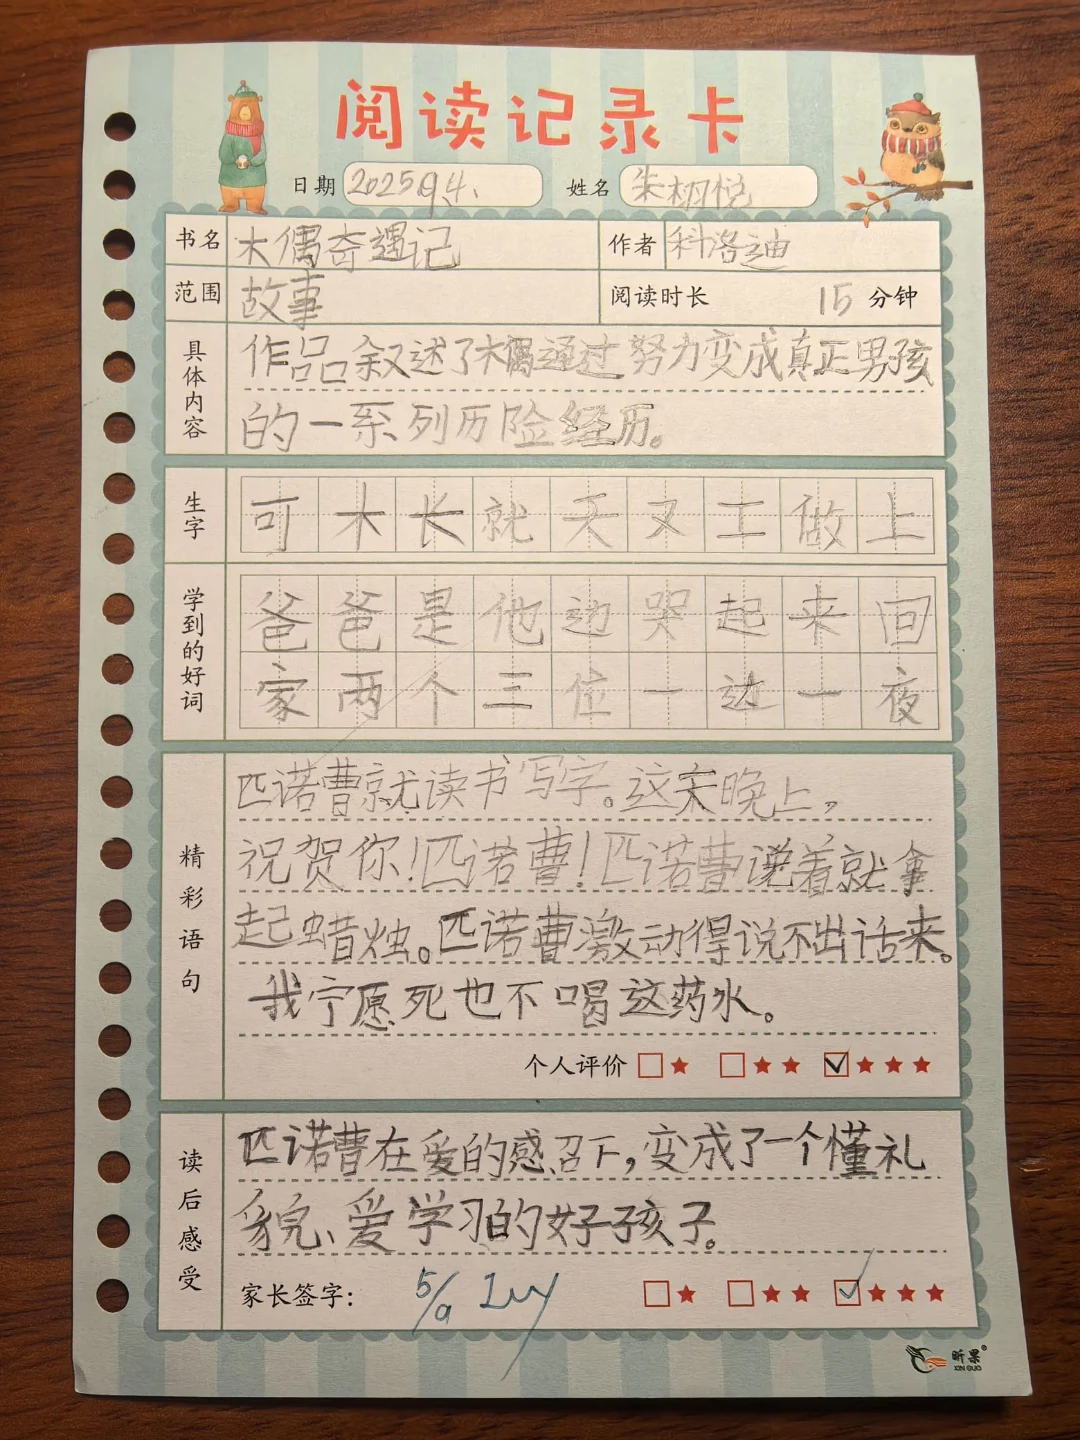 阅读记录卡
日期 2025.9.4. 姓名 朱栩悦
书名 木偶奇遇记 作者 科洛迪
范围 故事 阅读时长 15 分钟
具体内容
作品叙述了木偶通过努力变成真正男孩
的一系列历险经历。
生字
可木长就天又工做上
学到的好词
爸爸是他边哭起来回
家两个三位一边一夜
精彩语句
匹诺曹就读书写字。这天晚上,
祝贺你!匹诺曹!匹诺曹说着就拿
起蜡烛。匹诺曹激动得说不出话来。
我宁愿死也不喝这药水。
个人评价 ★ ★★ ★★★
读后感受
匹诺曹在爱的感召下,变成了一个懂礼
貌、爱学习的好子孩子。
家长签字: 5/9 ★ ★★ ★★★
昕果
XIN GUO